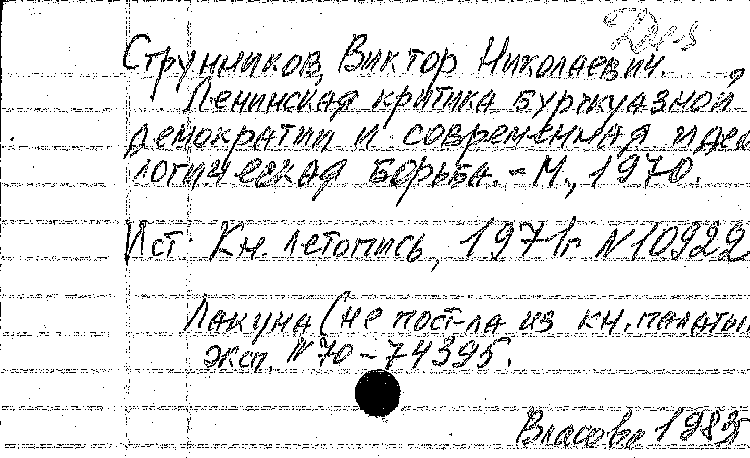 Струнников, Виктор Николаевич.
Ленинская критика буржуазной
демократии и современная идео
логическая борьба. - М., 1970.
Ист: Кн. летопись, 1971г. N10922
Лакуна (не пост-ла из кн. палаты.
экз. N70-74395.
Власова 1983